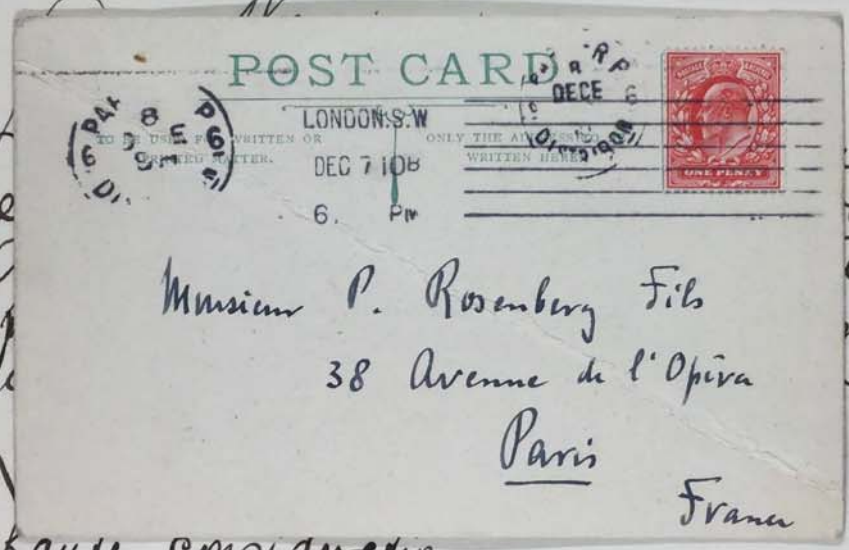 POST CARD
TO BE USED FOR WRITTEN OR
PRINTED MATTER.
ONLY THE ADDRESS TO
WRITTEN HERE
LONDON.S.W
DEC 7 08
6. PM
DECE
DISTRIBUTION
ONE PENNY
Monsieur P. Rosenberg Fils
38 Avenue de l'Opéra
Paris
France